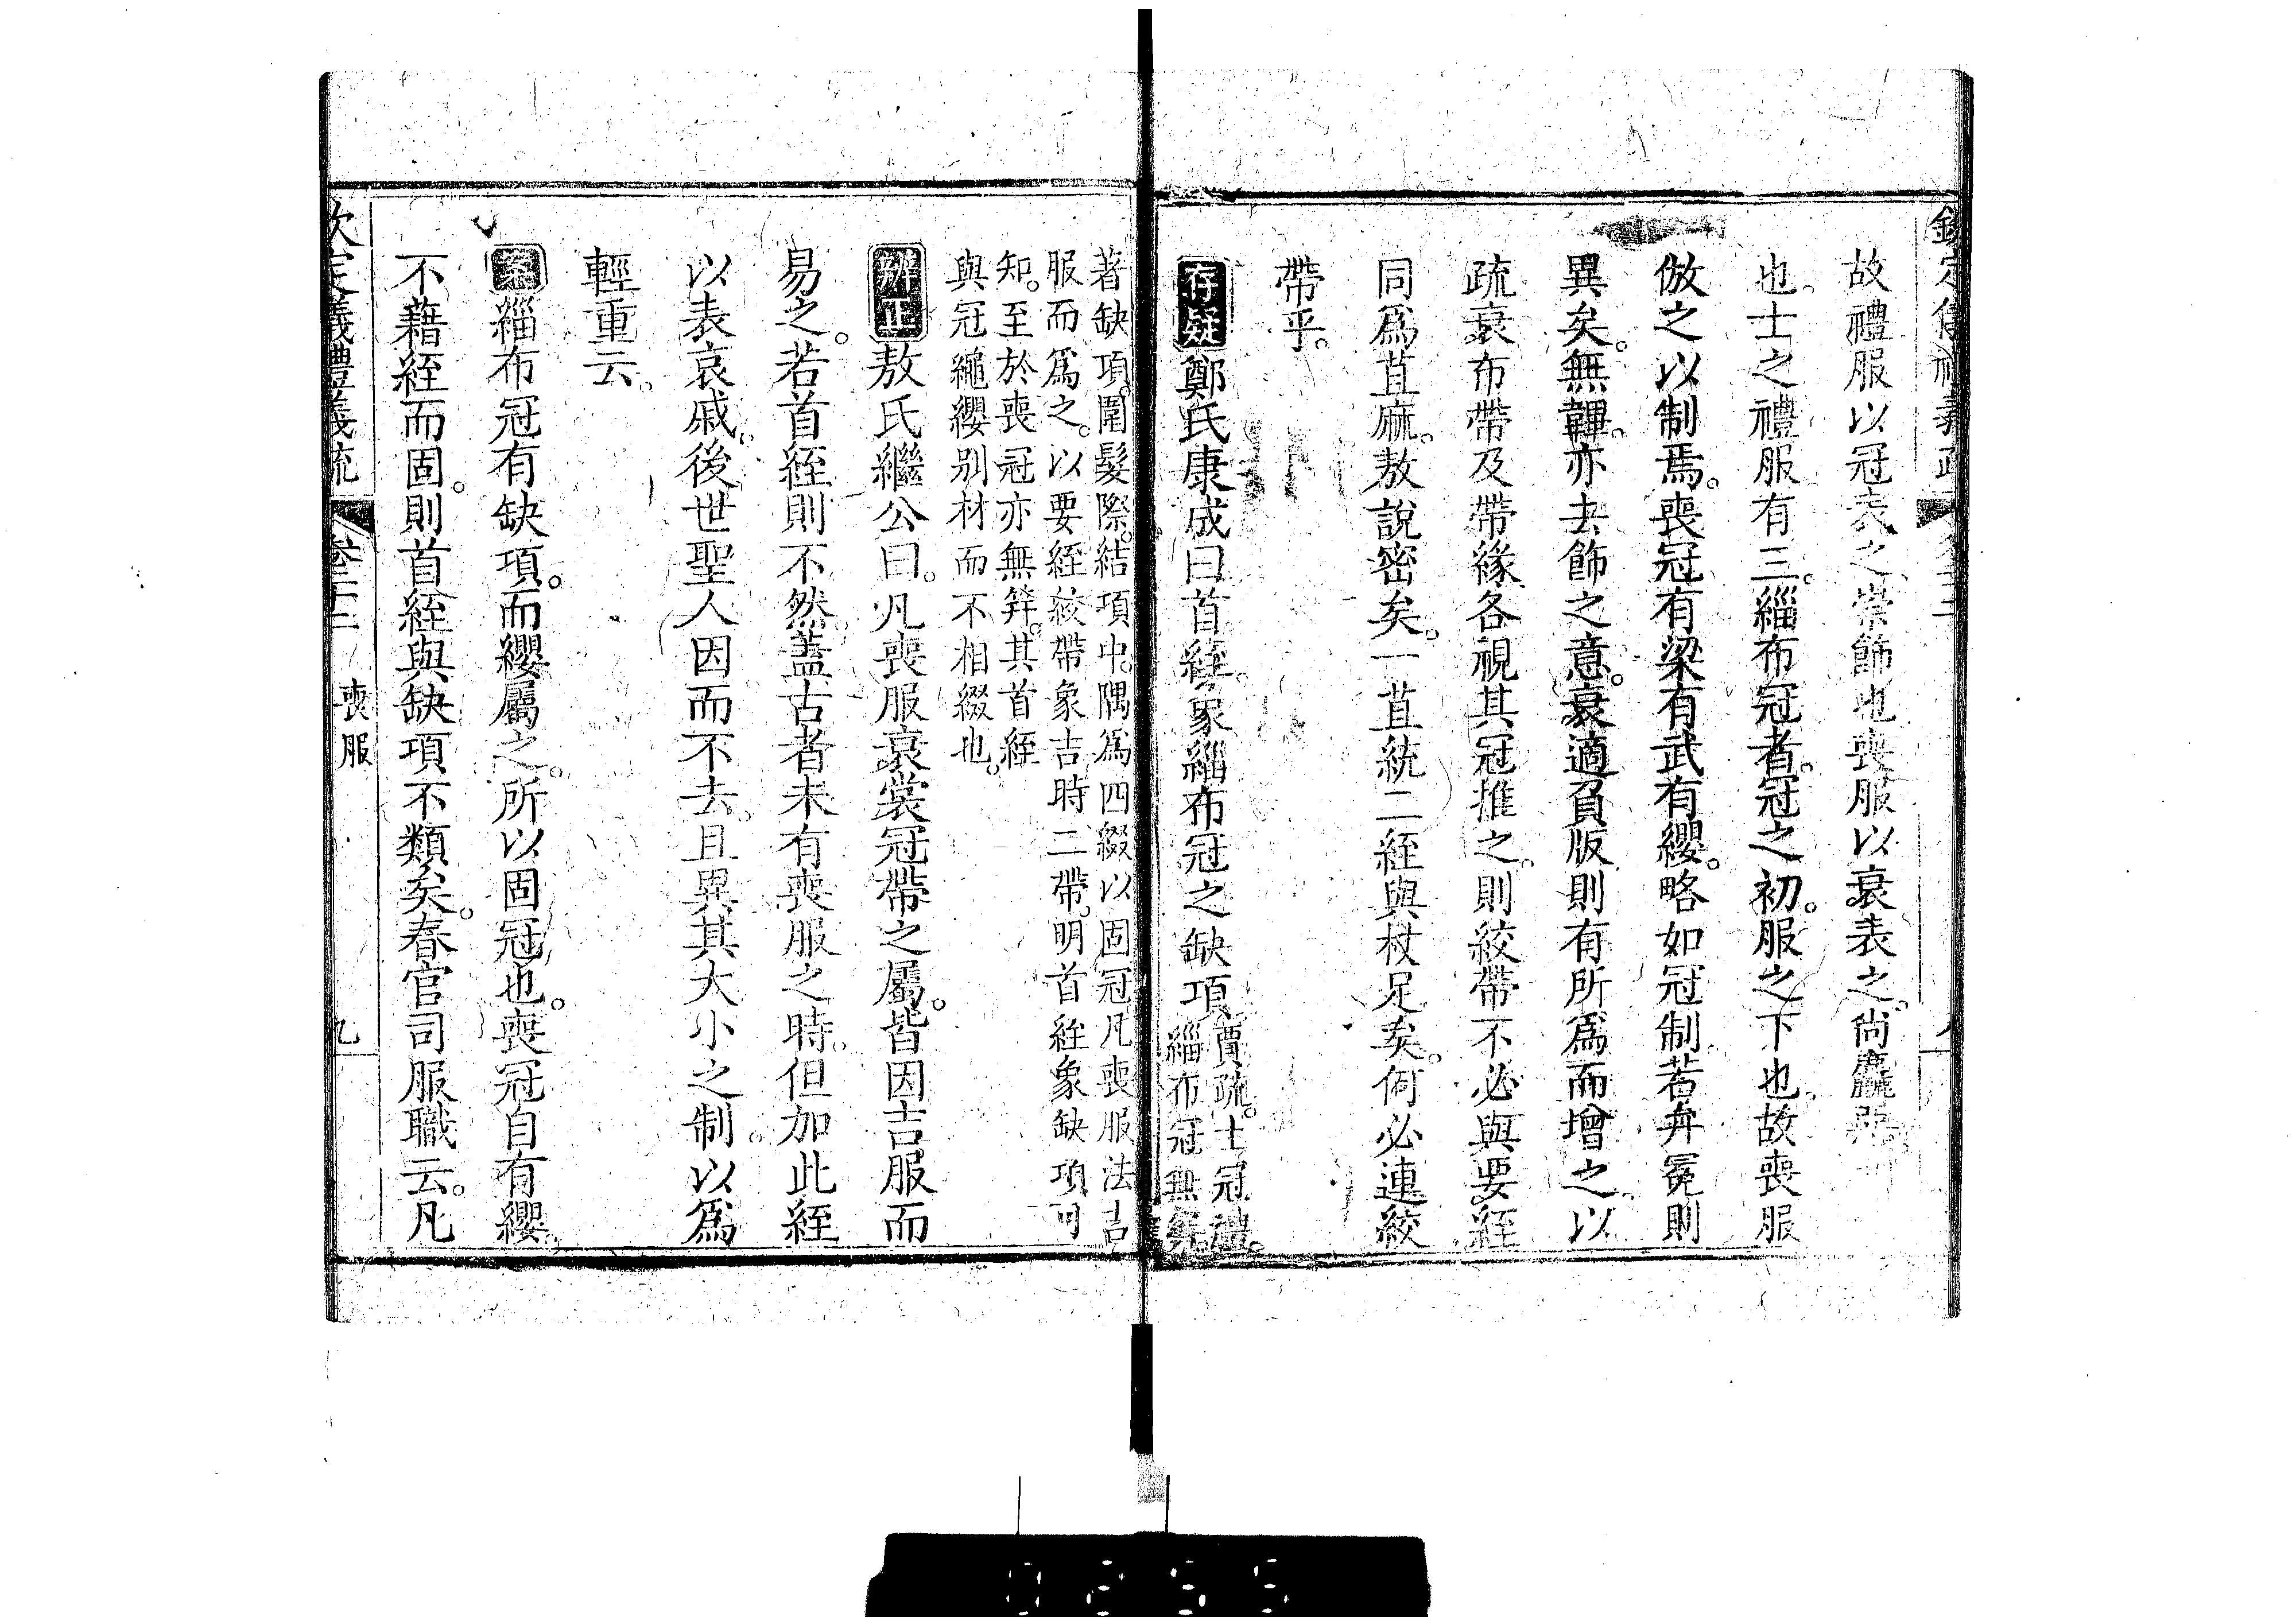 故禮服以冠表之崇飾也喪服以衰表之。尚麤
也。士之禮服有三。緇布冠者。冠之初。服之下也。故喪服
倣之以制焉。喪冠有梁有武有纓。略如冠制若弁冕則
異矣。無韠。亦去飾之意。衰適負版則有所爲而增之。以
疏衰布帶及帶緣各視其冠推之。則絞帶不必與要絰
同爲苴麻。敖說密矣。一苴統二絰與杖足矣。何必連絞
帶乎。
存疑鄭氏康成曰首絰。象緇布冠之缺項賈疏。士冠禮。
緇布冠無笄。
著缺項。圍髮際。結項中。隅爲四綴以固冠凡喪服法吉
服而爲之。以要絰絞帶象吉時二帶。明首絰象缺項可
知。至於喪冠亦無笄。其首絰
與冠繩纓别材而不相綴也。
辨正敖氏繼公曰。凡喪服衰裳冠帶之屬。皆因吉服而
易之。若首絰則不然。蓋古者未有喪服之時。但加此絰
以表哀戚。後世聖人因而不去。且異其大小之制。以爲
輕重云。
案緇布冠有缺項。而纓屬之。所以固冠也。喪冠自有纓。
不藉絰而固。則首絰與缺項不類矣。春官司服職云。凡
喪服
九